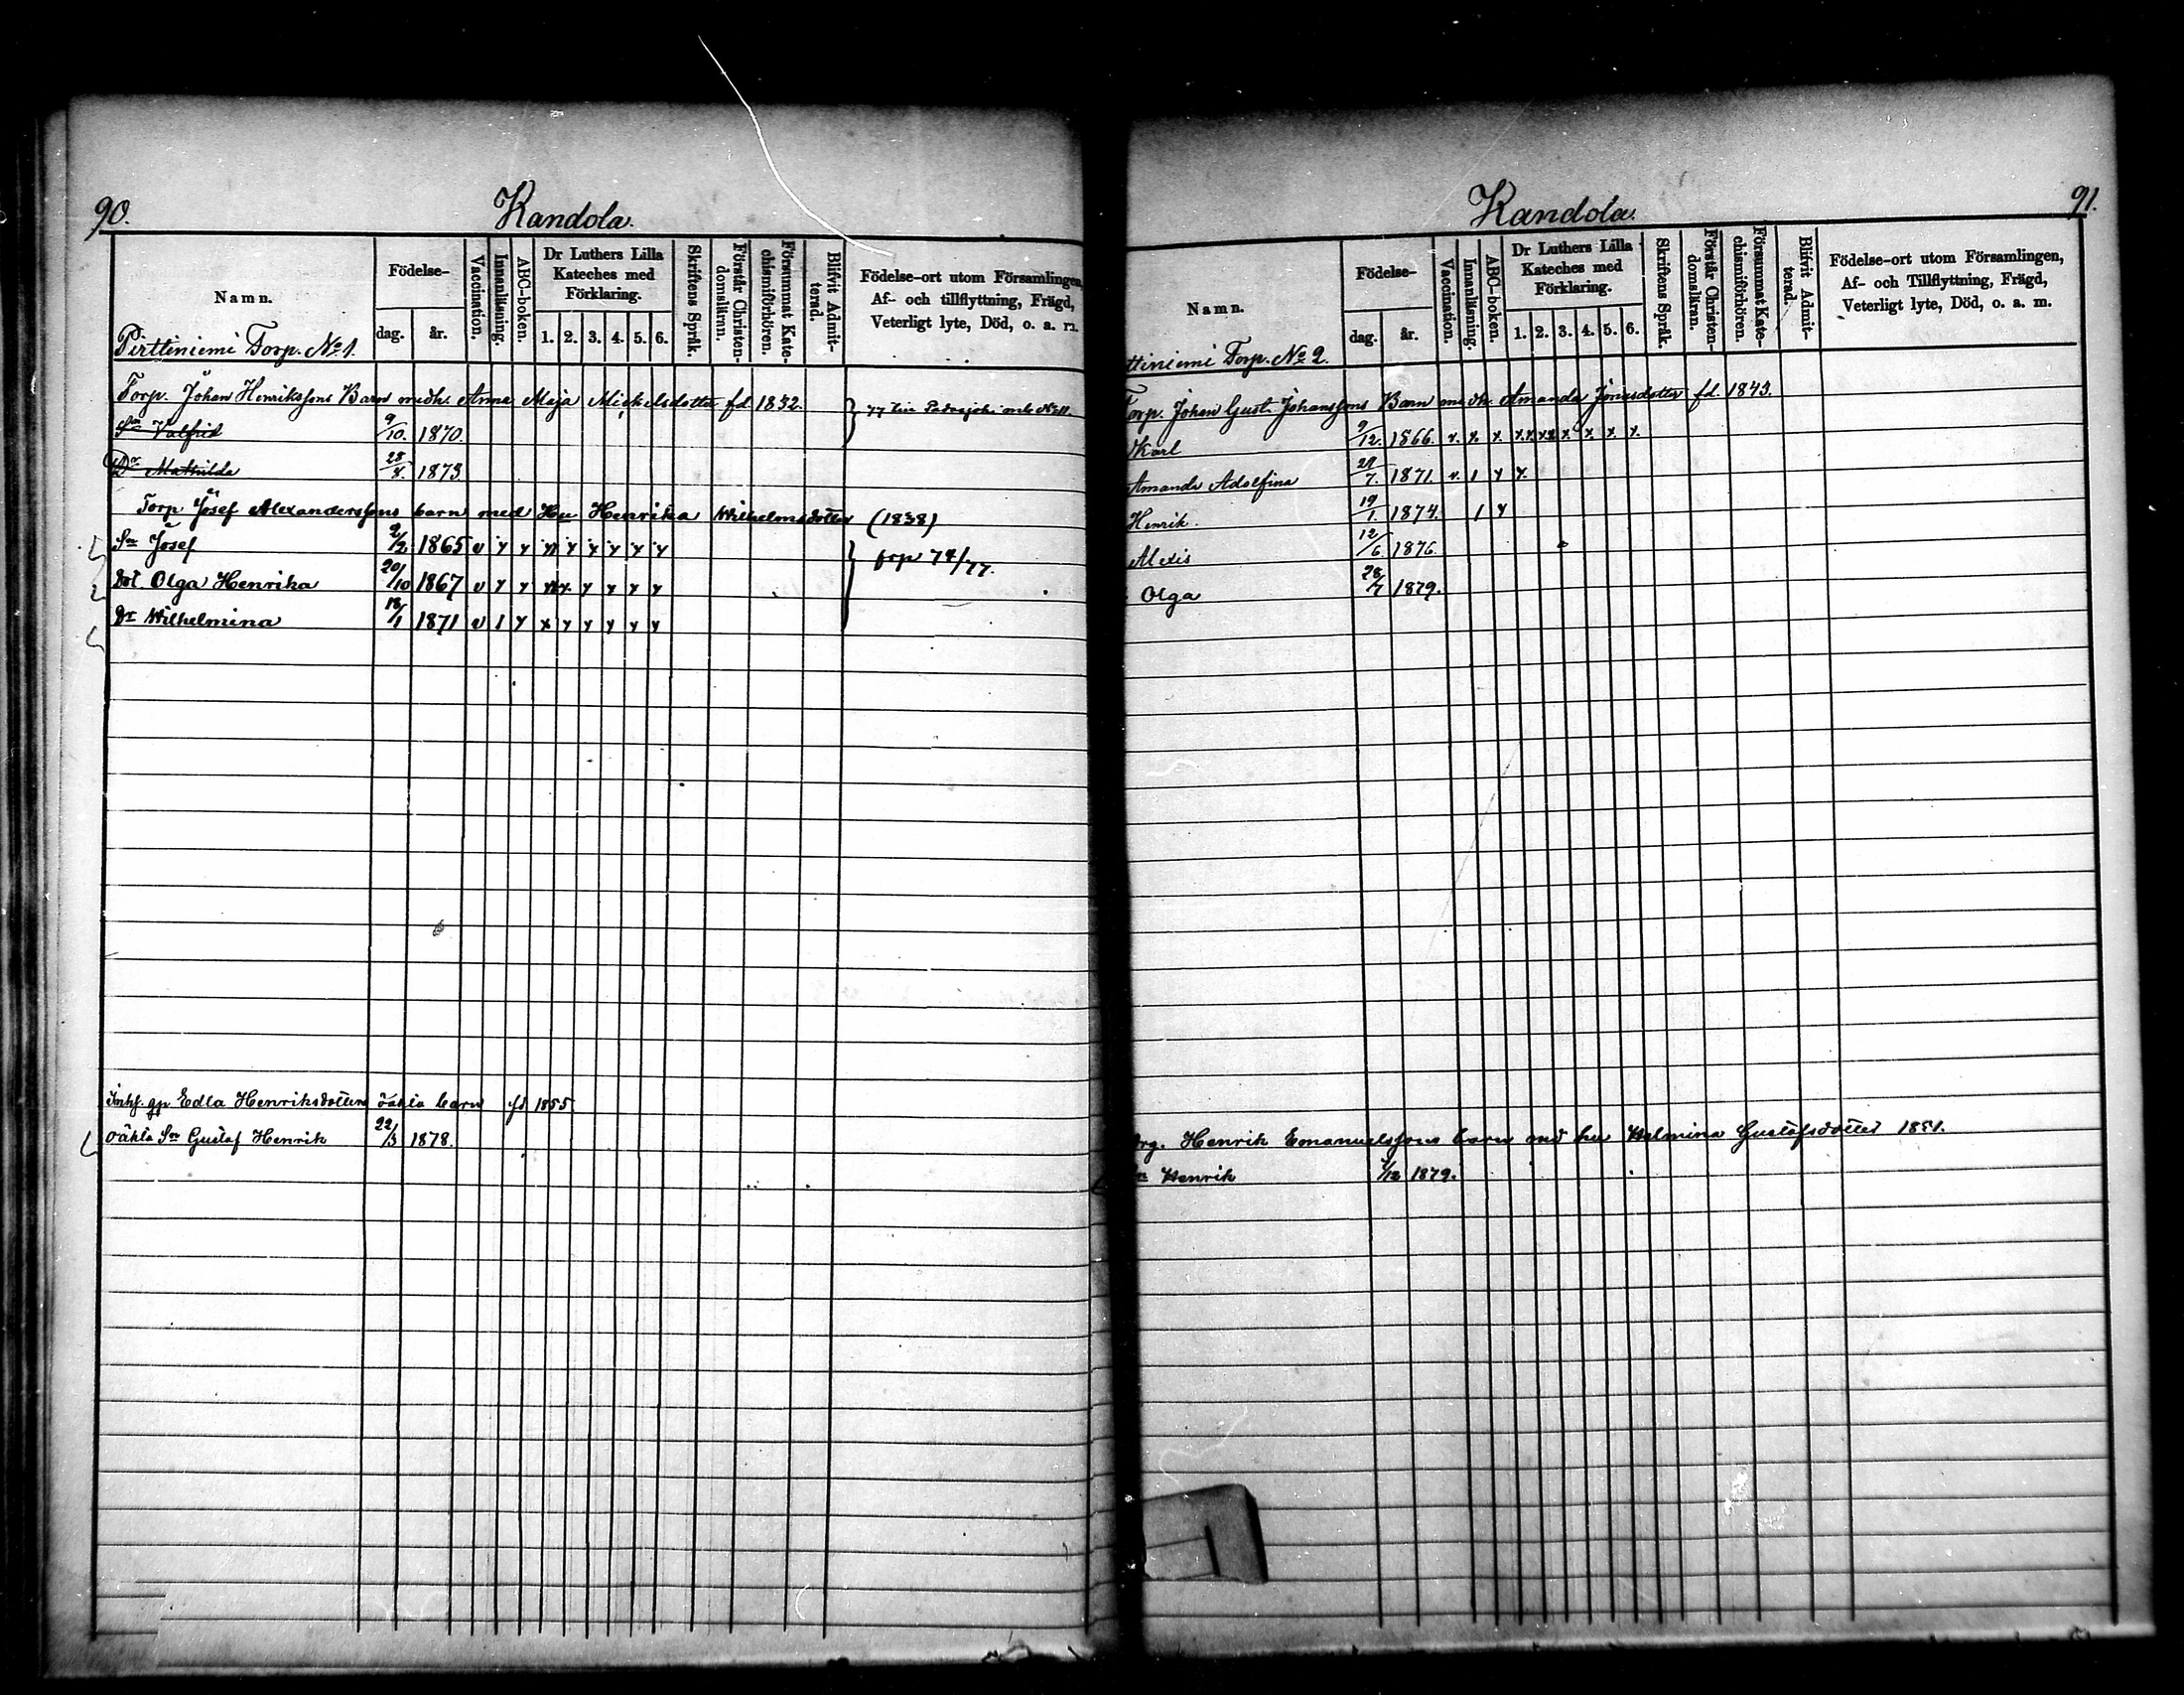 90.
Kandola.
Namn.
Födelse-
dag.
år.
Vaccination.
Innanläsning.
ABC-boken.
Dr Luthers Lilla
Kateches med
Förklaring.
1. 2. 3. 4. 5. 6.
Skriftens Språk.
Förstår Christen-
domsläran.
Försummat Kate-
chismiförhören.
Blifvit Admit-
terad.
Födelse-ort utom Församlingen,
Af- och tillflyttning, Frägd,
Veterligt lyte, Död, o. a. m.
Pirttiniemi Torp. No 1.
Torp. Johan Henrikssons Barn m. Anna Maja Mickelsdotter fd. 1832.
77 till Padasjoki
Sn Valfrid 9/10. 1870.
Dr Mathilda 28/ 1873
Torp Josef Alexanderssons barn med Hu Henrika Wilhelmsdotter (1838)
Sn Josef 9/2 1865 v y y y y y y y
frp 74/77.
Dot. Olga Henrika 20/10 1867 v y y x y y y y
Dr Wilhelmina 18/1 1871 v 1 y x y y y y y
Inhs. gp Edla Henriksdotters oäkta barn fd 1855
Oäkta Sn Gustaf Henrik 22/3 1878.
91.
Kandola.
Namn.
Födelse-
dag.
år.
Vaccination.
Innanläsning.
ABC-boken.
Dr Luthers Lilla
Kateches med
Förklaring.
1. 2. 3. 4. 5. 6.
Skriftens Språk.
Förstår Christen-
domsläran.
Försummat Kate-
chismiförhören.
Blifvit Admit-
terad.
Födelse-ort utom Församlingen,
Af- och Tillflyttning, Frägd,
Veterligt lyte, Död, o. a. m.
ttiniemi Torp. No 2.
Torp. Johan Gust. Johanssons Barn Amanda Jonasdotter fd. 1843.
Karl 9/12. 1866. x. x. x. x.x. x.x. x. x. x. x.
Amanda Adolfina 7. 1871. v. 1 y y.
Henrik. 19/1. 1874. 1 y
Alexis 12/6. 1876.
Olga 28/7 1879.
rg. Henrik Emanuelssons barn med hu Helmina Gustafsdotter 1851.
Henrik /12 1879.